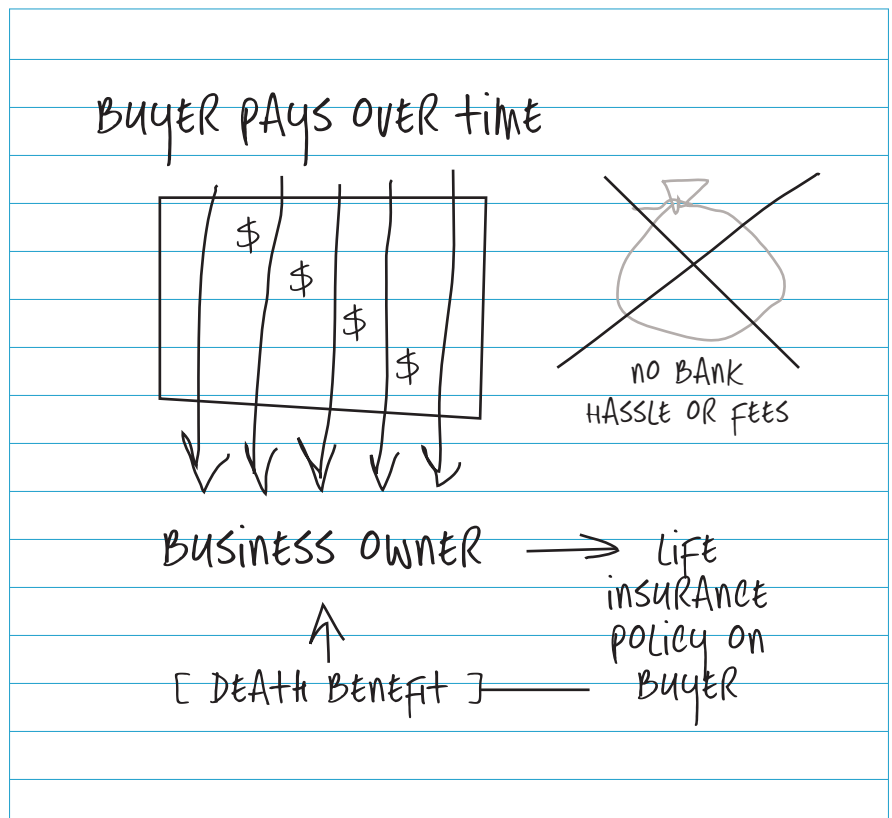 BUYER PAYS OVER TIME
$
$
$
$
NO BANK
HASSLE OR FEES
BUSINESS OWNER
LIFE
INSURANCE
POLICY ON
BUYER
[ DEATH BENEFIT ]